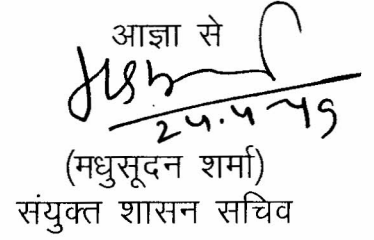 आज्ञा से
(मधुसूदन शर्मा)
संयुक्त शासन सचिव